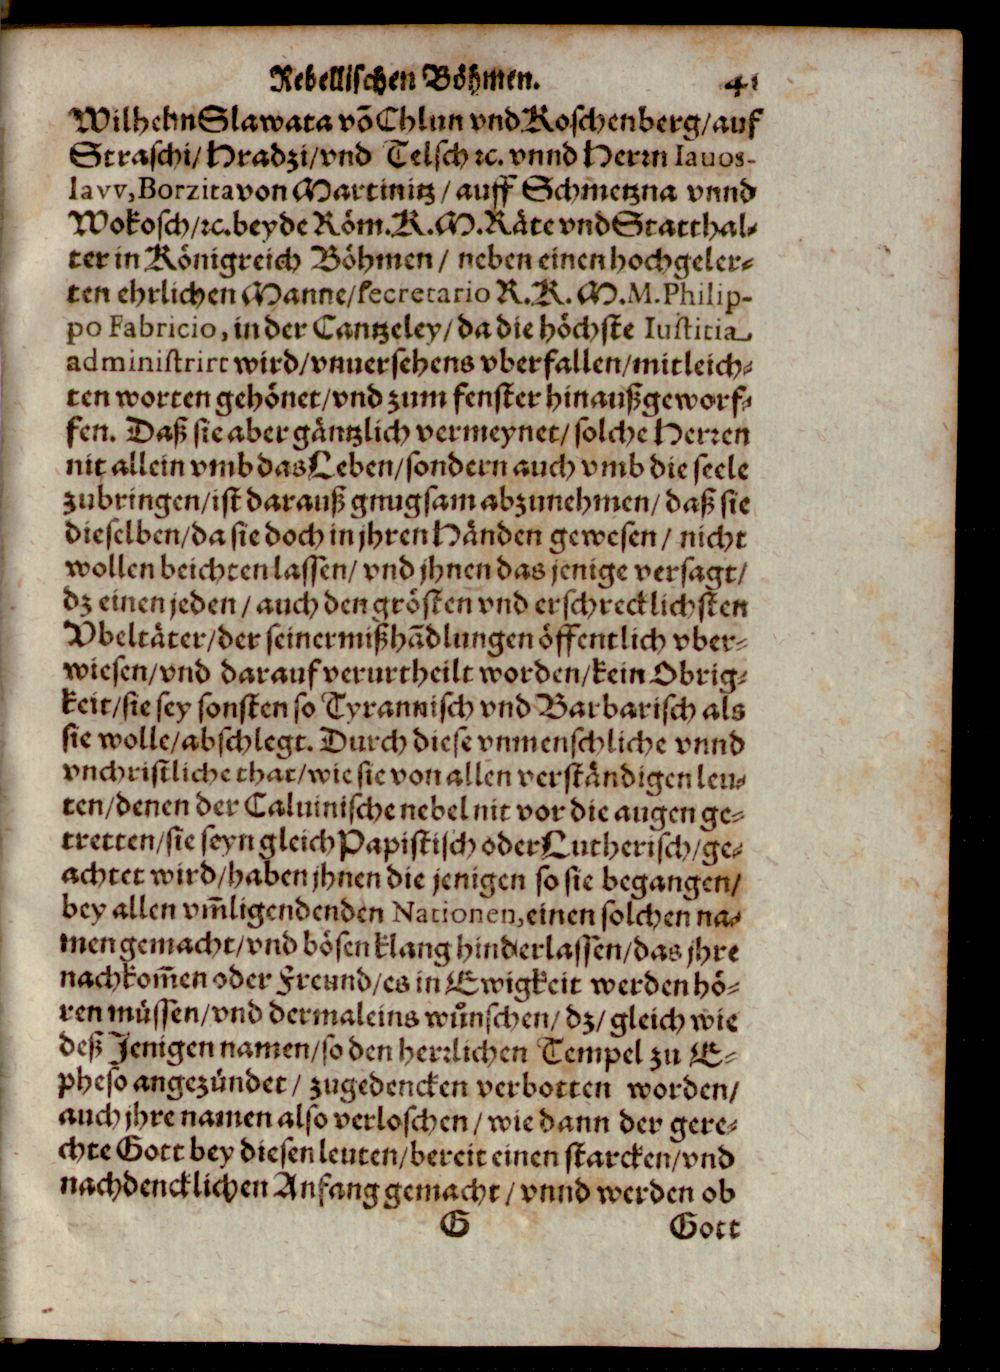 Rebellischen Böhmen. 41
Wilhelm Slawata võ Chlun vnd Koschenberg/auf
Straschi/Hradzi/vnd Telsch ꝛc. vnnd Herꝛn Iauos-
lavv, Borzita von Martinitz/auff Schmetzna vnnd
Wokosch/ꝛc. beyde Röm. K. M. Räte vnd Statthal-
ter in Königreich Böhmen/neben einen hochgeler-
ten ehrlichen Manne/secretario R. K. M. M. Philip-
po Fabricio, in der Cantzeley/da die höchste Iustitia
administrirt wird/vnuersehens vberfallen/mit leich-
ten worten gehönet/vnd zum fenster hinauß geworf-
fen. Daß sie aber gäntzlich vermeynet/solche Herꝛen
nit allein vmb das Leben/sondern auch vmb die seele
zubringen/ist darauß gnugsam abzunehmen/daß sie
dieselben/da sie doch in jhren Händen gewesen/nicht
wollen beichten lassen/vnd jhnen das jenige versagt/
dz einen jeden/auch den grösten vnd erschrecklichsten
Vbeltäter/der seiner mißhãdlungen öffentlich vber-
wiesen/vnd darauf verurtheilt worden/kein Obrig-
keit/sie sey sonsten so Tyrannisch vnd Barbarisch als
sie wolle/abschlegt. Durch diese vnmenschliche vnnd
vnchristliche that/wie sie von allen verständigen leu-
ten/denen der Caluinische nebel nit vor die augen ge-
tretten/sie seyn gleich Papistisch oder Lutherisch/ge-
achtet wird/haben jhnen die jenigen so sie begangen/
bey allen vm̃ligendenden Nationen, einen solchen na-
men gemacht/vnd bösen klang hinderlassen/das jhre
nachkom̃en oder Freund/es in Ewigkeit werden hö-
ren müssen/vnd dermaleins wůnschen/dz/gleich wie
deß Jenigen namen/so den herꝛlichen Tempel zu E-
pheso angezündet/zugedencken verbotten worden/
auch jhre namen also verloschen/wie dann der gere-
chte Gott bey diesen leuten/bereit einen starcken/vnd
nachdencklichen Anfang gemacht/vnnd werden ob
G Gott